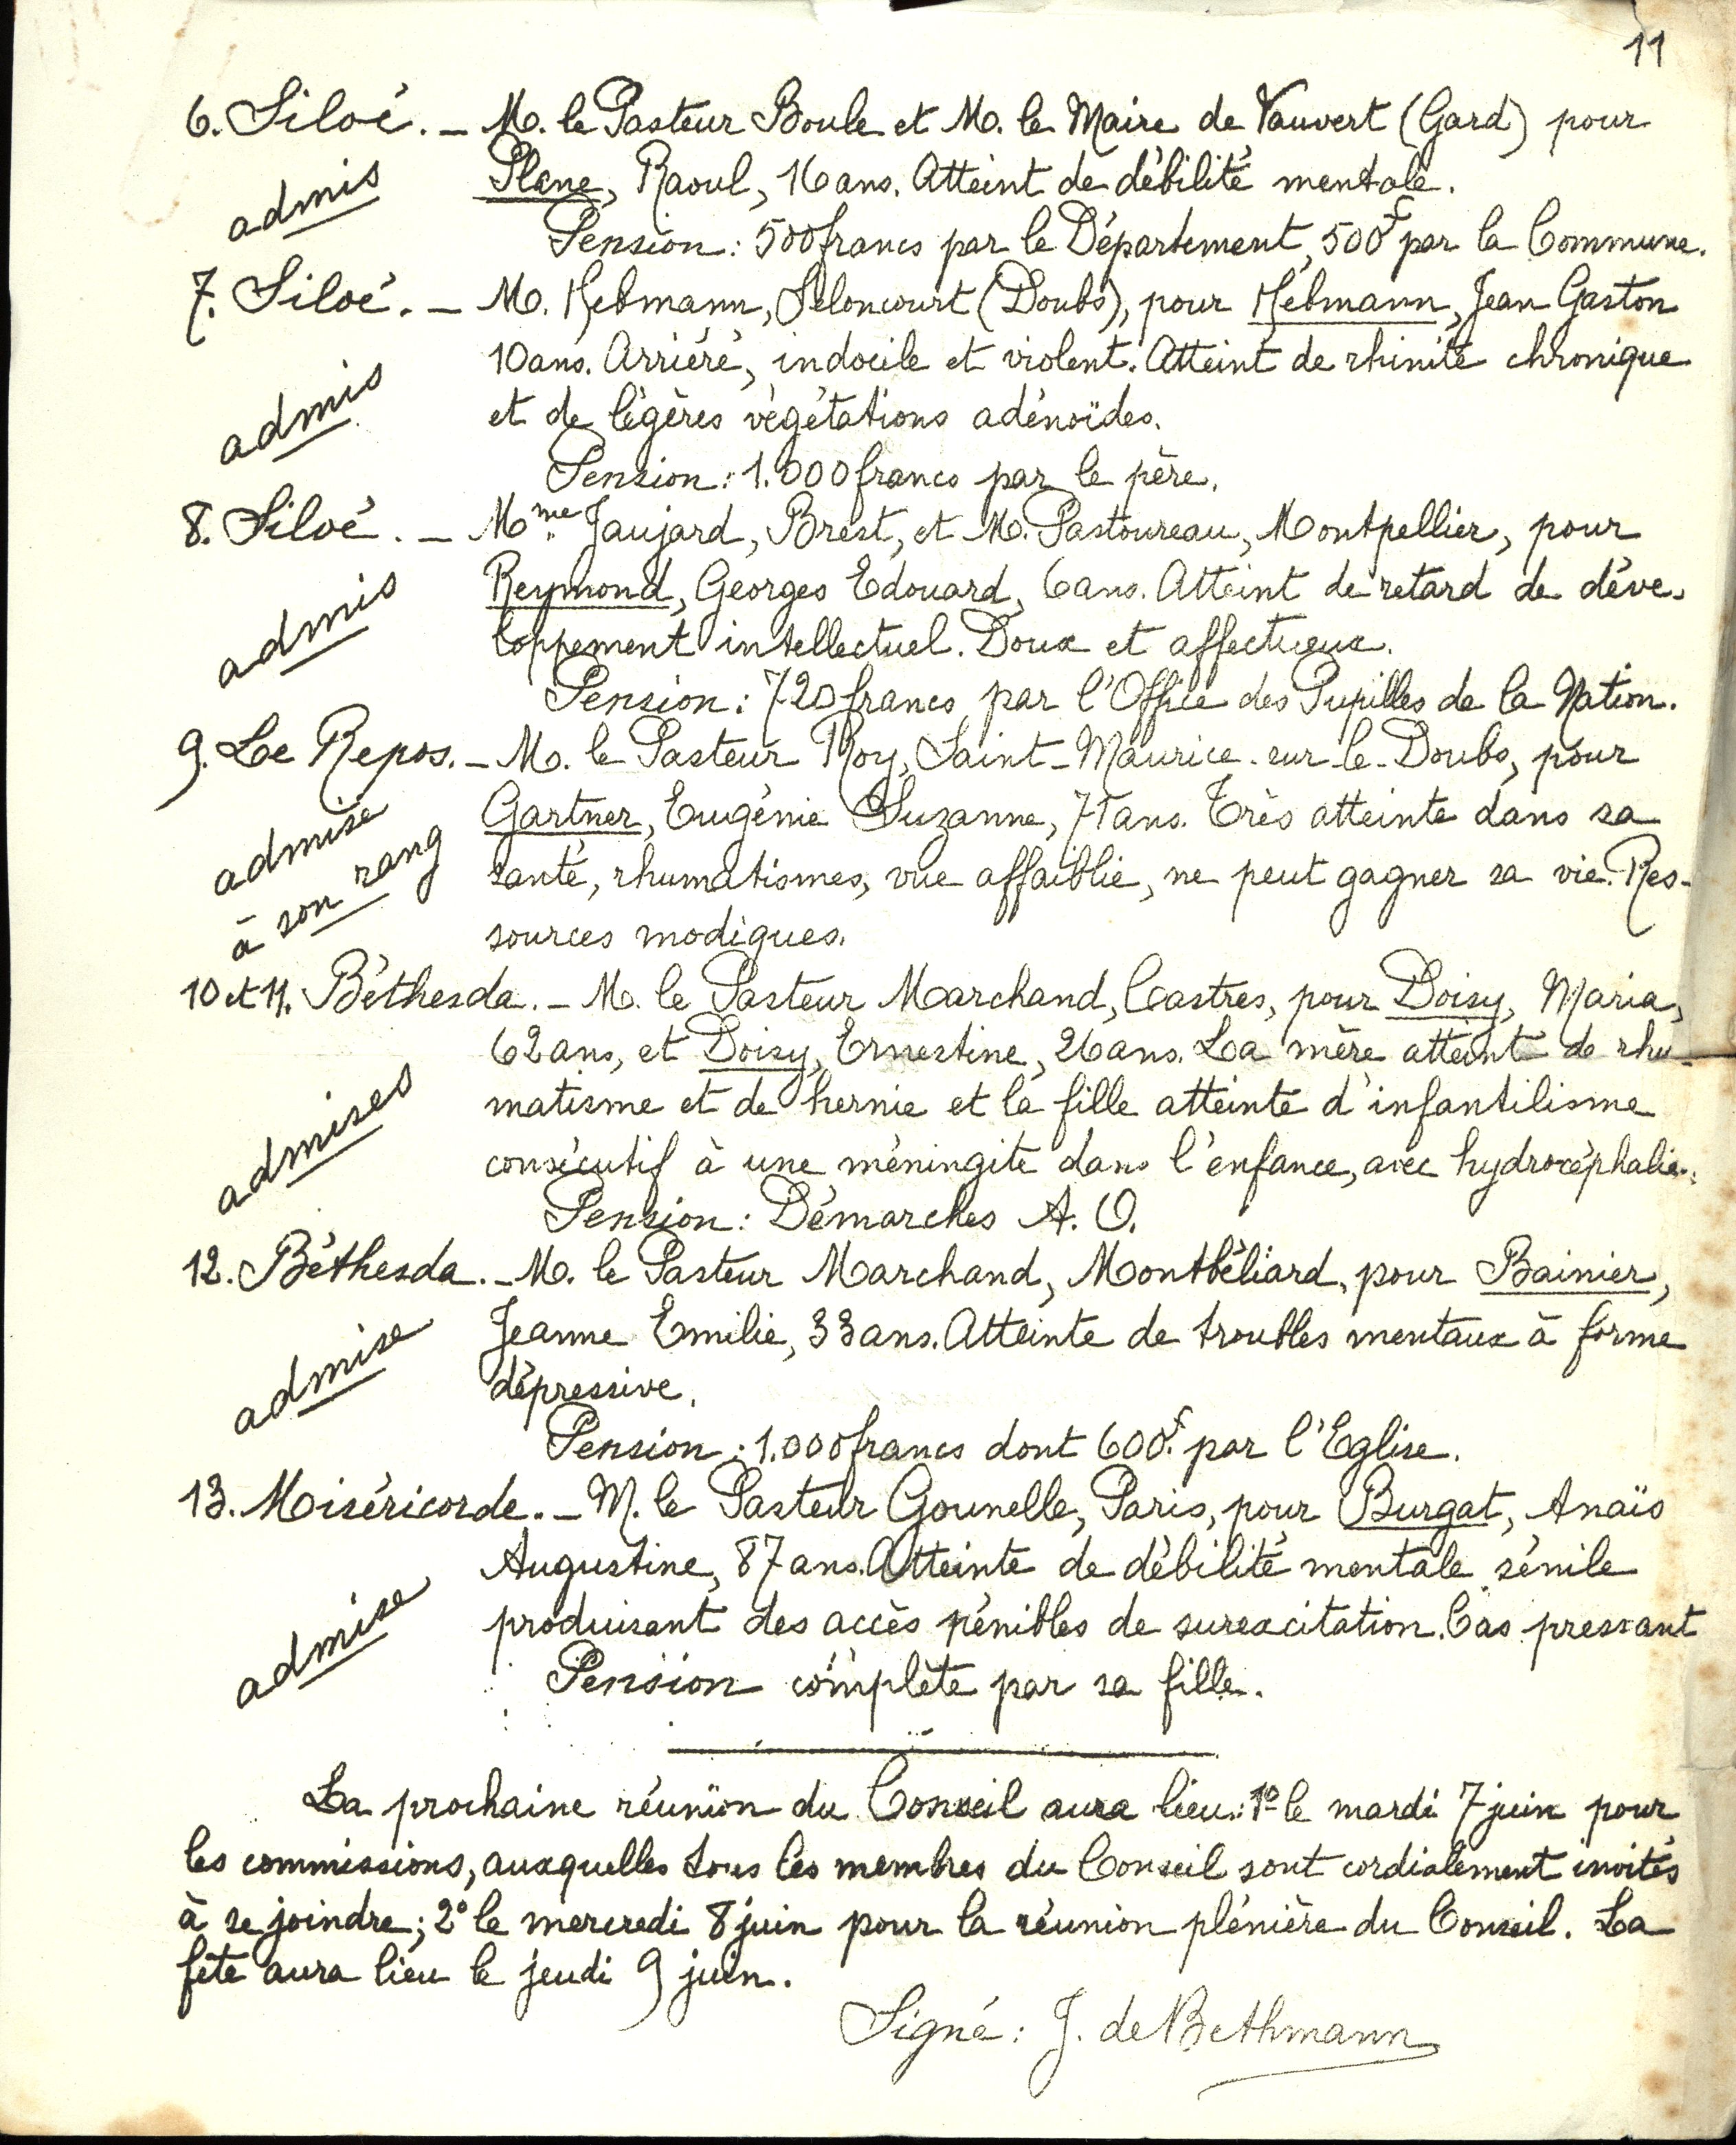 11
6. Siloé. — M. le Pasteur Boule et M. le Maire de Vauvert (Gard) pour
admis
Plane, Raoul, 16 ans. Atteint de débilité mentale.
Pension : 500 francs par le Département, 500f par la Commune.
7. Siloé. — M. Hebmann, Seloncourt (Doubs), pour Hebmann, Jean Gaston
10 ans. Arriéré, indocile et violent. Atteint de rhinite chronique
admis
et de légères végétations adénoïdes.
Pension : 1.000 francs par le père.
8. Siloé. — Mme Jaujard, Brest, et M. Pastoureau, Montpellier, pour
Reymond, Georges Edouard, 6 ans. Atteint de retard de déve-
admis
loppement intellectuel. Doux et affectueux.
Pension : 720 francs par l'Office des Pupilles de la Nation.
9. Le Repos. — M. le Pasteur Roy, Saint-Maurice-sur-le-Doubs, pour
admise
à son rang
Gartner, Eugénie Suzanne, 71 ans. Très atteinte dans sa
santé, rhumatismes, vue affaiblie, ne peut gagner sa vie. Res-
sources modiques.
10 et 11. Béthesda. — M. le Pasteur Marchand, Castres, pour Doisy, Maria,
62 ans, et Doisy, Ernestine, 26 ans. La mère atteint de rhu-
admises
matisme et de hernie et la fille atteinte d'infantilisme
consécutif à une méningite dans l'enfance, avec hydrocéphalie.
Pension : Démarches A. O.
12. Béthesda. — M. le Pasteur Marchand, Montbéliard, pour Bainier,
admise
Jeanne Emilie, 33 ans. Atteinte de troubles mentaux à forme
dépressive.
Pension : 1.000 francs dont 600f. par l'Eglise.
13. Miséricorde. — M. le Pasteur Gounelle, Paris, pour Burgat, Anaïs
Augustine, 87 ans. Atteinte de débilité mentale sénile
admise
produisant des accès pénibles de surexcitation. Cas pressant
Pension complète par sa fille.
La prochaine réunion du Conseil aura lieu : 1º le mardi 7 juin pour
les commissions, auxquelles tous les membres du Conseil sont cordialement invités
à se joindre ; 2º le mercredi 8 juin pour la réunion plénière du Conseil. La
fête aura lieu le jeudi 9 juin.
Signé : J. de Bethmann